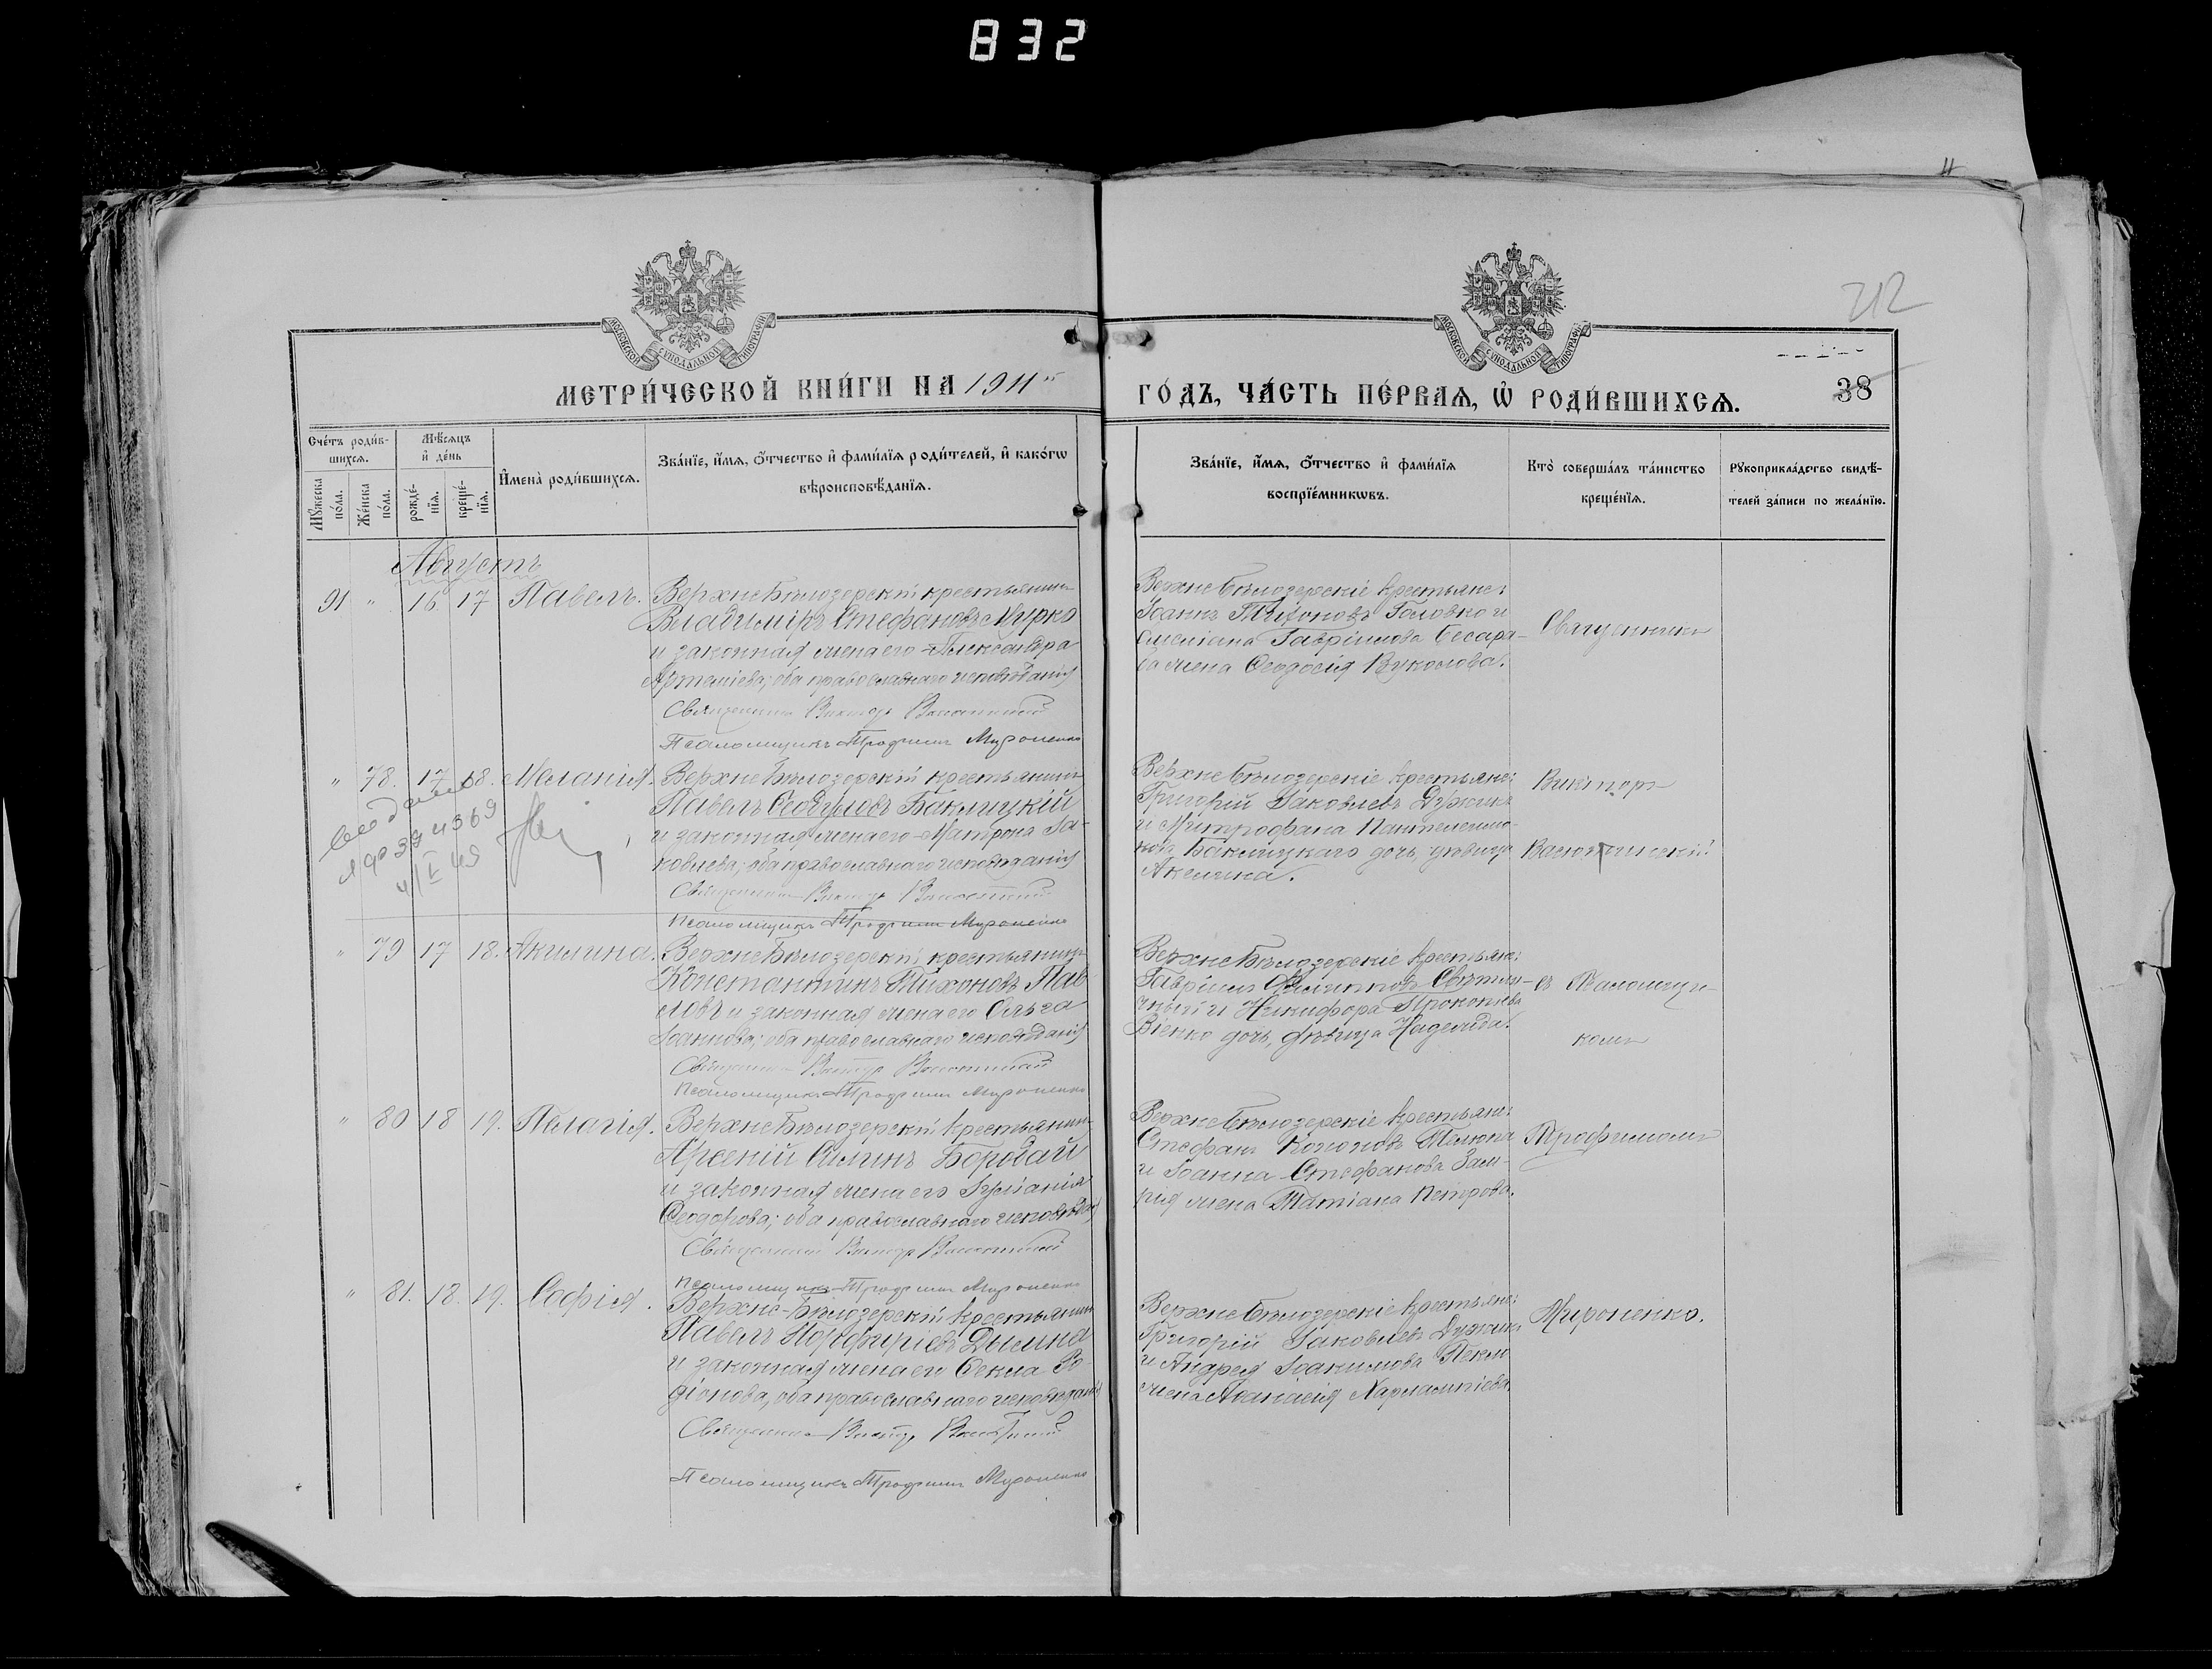 832
212
МОСКОВСКОЙ СѴНОДАЛЬНОЙ ТИПОГРАФІИ
МОСКОВСКОЙ СѴНОДАЛЬНОЙ ТИПОГРАФІИ
МЕТРИ́ЧЕСКОЙ КНИ́ГИ НА 1911
ГО́ДЪ, ЧА́СТЬ ПЕ́РВАЯ, Ѡ҆ РОДИ́ВШИХСѦ.
38
Сче́тъ роди́в-
шихсѧ.
Мѣ́сѧцъ
и҆ де́нь
Мꙋ́жеска
по́ла.
Же́нска
по́ла.
рожде́-
нїѧ.
креще́-
нїѧ.
И҆мена̀ роди́вшихсѧ.
Зва́нїе, и҆́мѧ, ѻ҆́тчество и҆ фами́лїѧ роди́телей, и҆ како́гѡ
вѣроисповѣ́данїѧ.
Зва́нїе, и҆́мѧ, ѻ҆́тчество и҆ фами́лїѧ
воспрїе́мникѡвъ.
Кто̀ соверша́лъ та́инство
креще́нїѧ.
Рꙋкоприкла́дство свидѣ́-
телей за́писи по жела́нїю.
Августъ
91 " 16 17 Павелъ. Верхне Бѣлозерскій крестьянинъ
Владиміръ Стефановъ Мурко
и законная жена его Александра
; оба православнаго исповѣданія
Священникъ Викторъ
Псаломщикъ Трофимъ Мироненко
Верхне Бѣлозерскіе крестьяне:
Іоаннъ Тихоновъ Головко и
Гавріилова Бесара-
ба жена Ѳеодосія Вуколова.
Священникъ
" 78. 17 18. Меланія. Верхне Бѣлозерскій крестьянинъ
Павелъ Бакмицкій
и законная жена его Матрона Іа-
ковлева; оба православнаго исповѣданія
Священникъ Викторъ
Псаломщикъ Трофимъ Мироненко
394569
4/I 45
Верхне Бѣлозерскіе крестьяне:
Григорій Іаковлевъ
и Митрофана Пантелеимо-
нова Бакмицкаго дочь, дѣвица
Акилина.
Викторъ
" 79 17 18. Акилина. Верхне Бѣлозерскій крестьянинъ
Константинъ Тихоновъ Пав-
ловъ и законная жена его Ольга
Іоаннова; оба православнаго исповѣданія
Священникъ Викторъ
Псаломщикъ Трофимъ Мироненко
Верхне Бѣлозерскіе крестьяне:
Гавріилъ Филипповъ
и Никифора Прокопіева
дочь, дѣвица Надежда.
съ Псаломщи-
комъ
" 80 18 19. Пелагія. Верхне Бѣлозерскій крестьянинъ
Арсеній Силинъ Бородай
и законная жена его Іуліанія
Ѳеодорова; оба православнаго исповѣданія
Священникъ Викторъ
Псаломщикъ Трофимъ Мироненко
Верхне Бѣлозерскіе крестьяне:
Стефанъ Кононовъ
и Іоанна Стефанова
жена Татіана Петрова.
Трофимомъ
" 81. 18. 19. Софія. Верхне-Бѣлозерскій крестьянинъ
Павелъ Порфиріевъ
и законная жена его Ѳекла Ро-
діонова, оба православнаго исповѣданія
Священникъ Викторъ
Псаломщикъ Трофимъ Мироненко
Верхне Бѣлозерскіе крестьяне:
Григорій Іаковлевъ
и Андрея Іоакимова
жена Аѳанасія Харлампіева.
Мироненко.